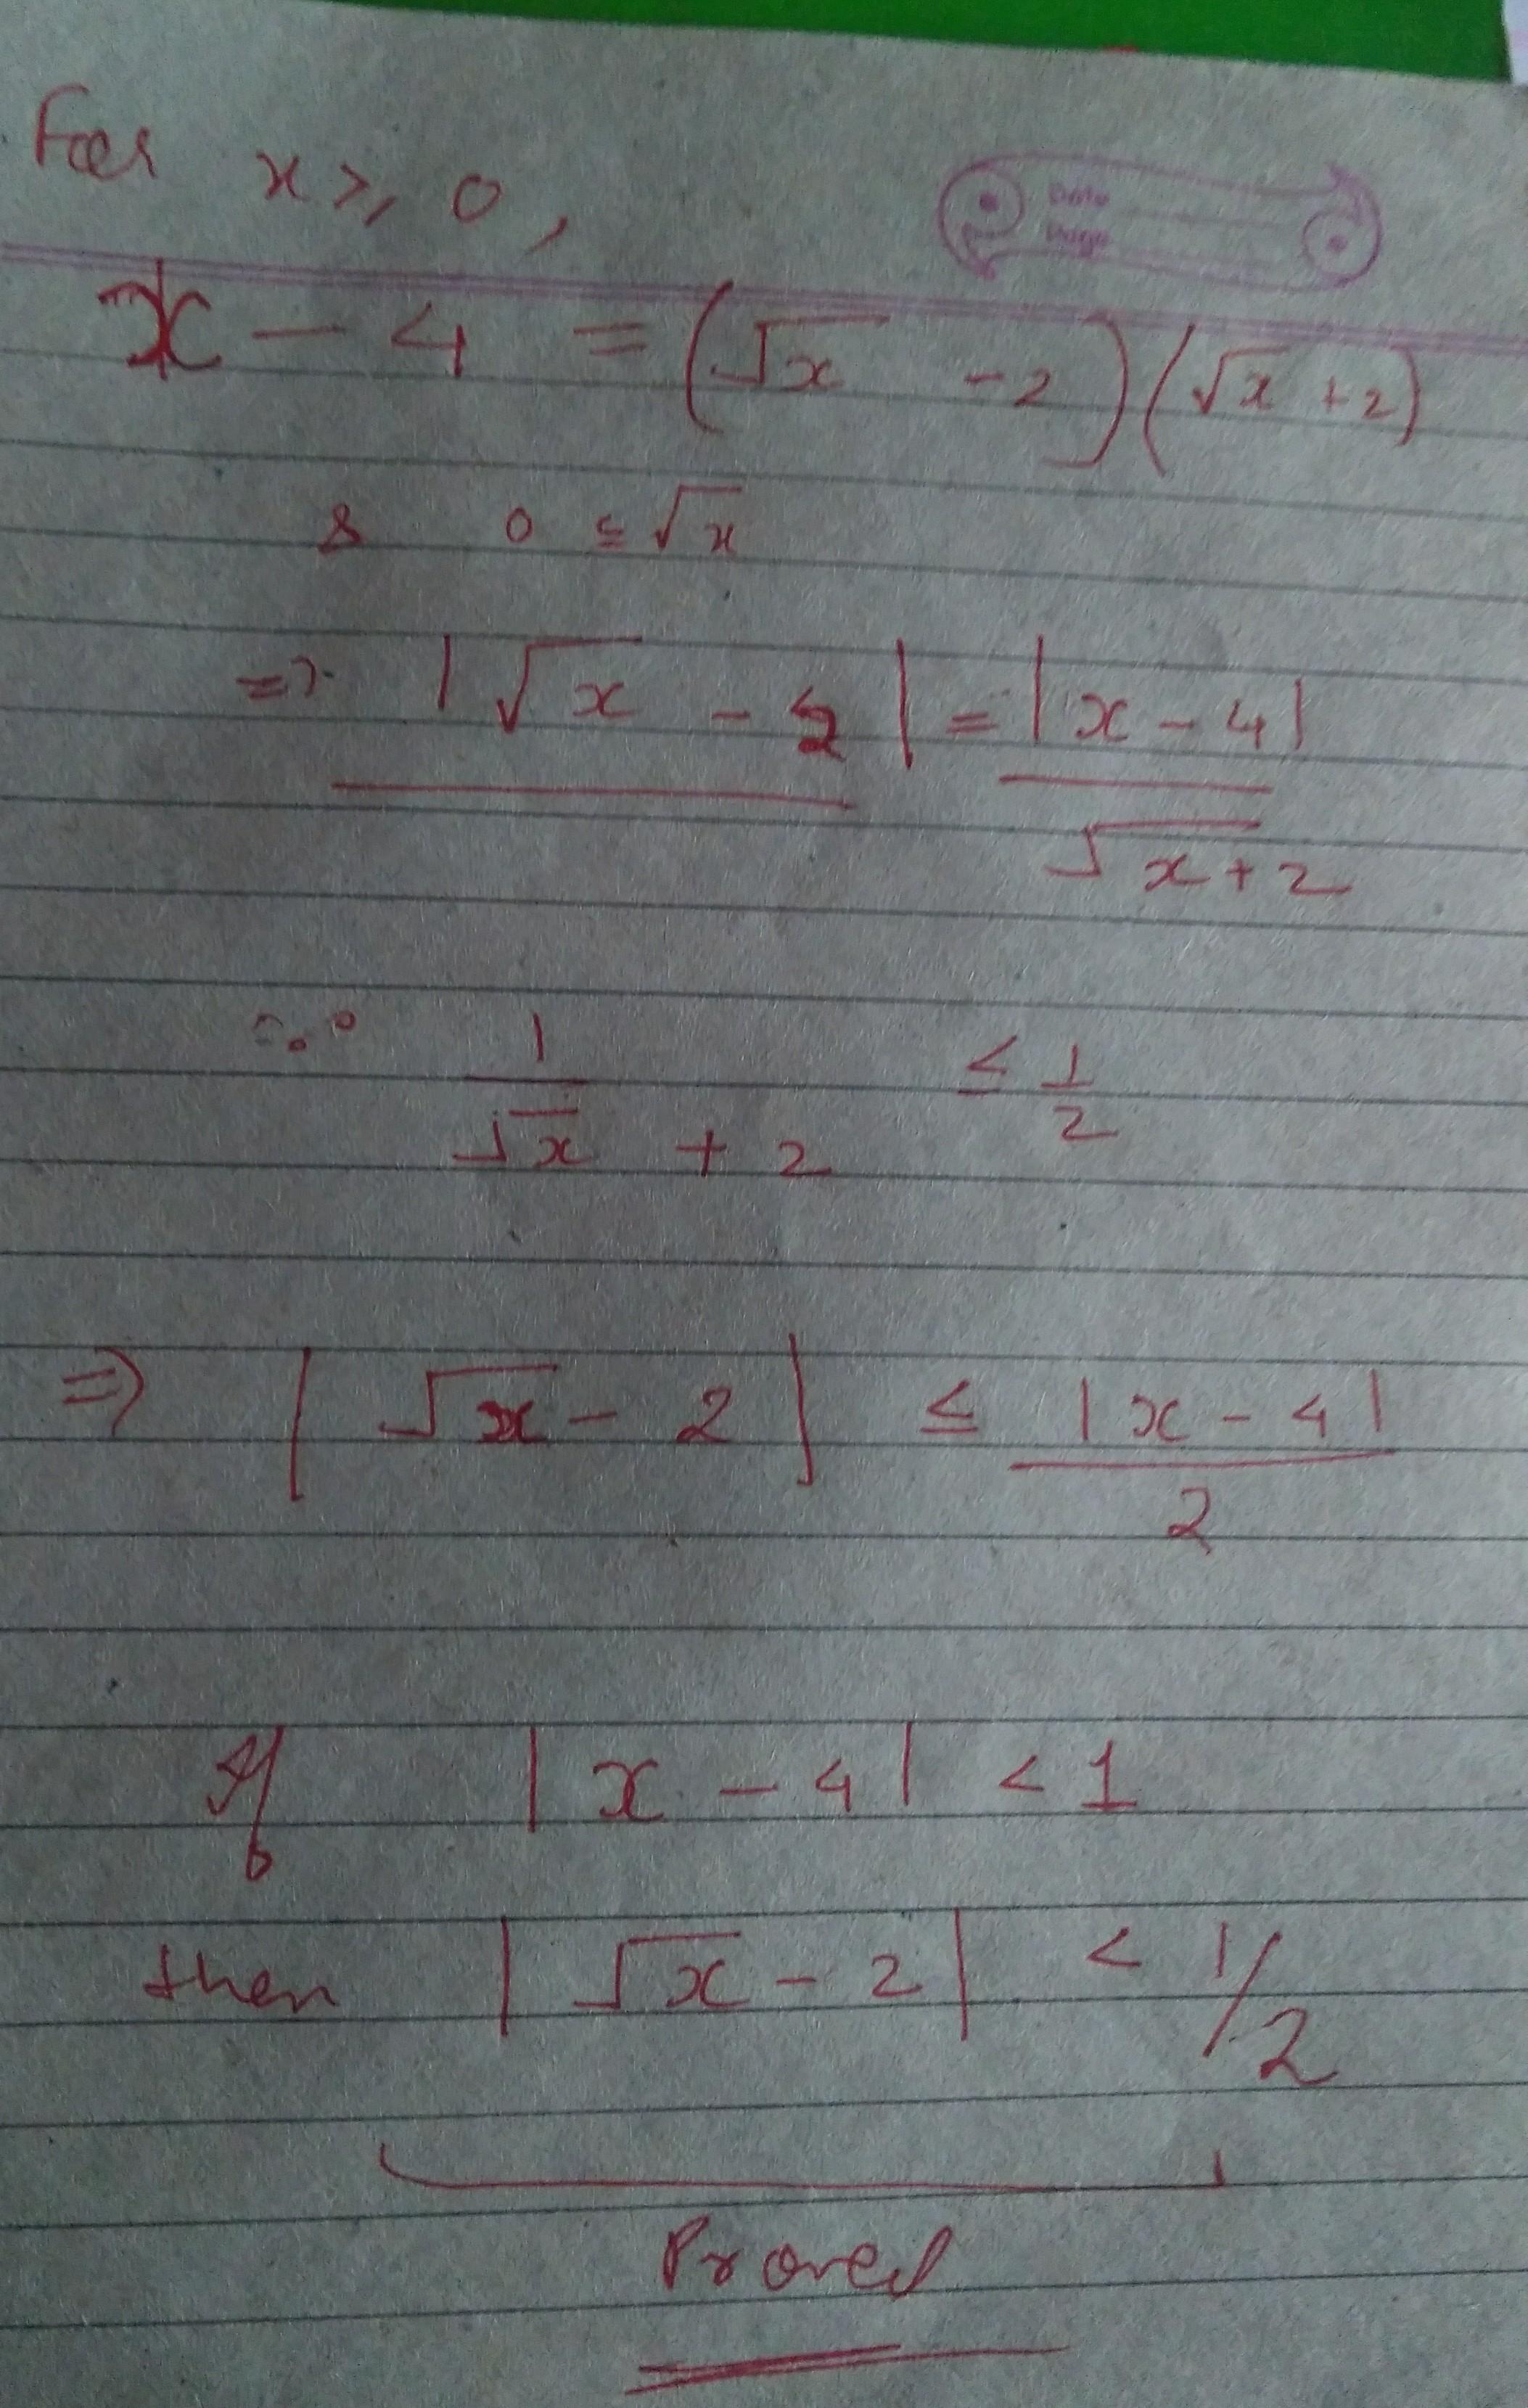 For x ≥ 0,
Date
Page
x - 4 = (√x - 2)(√x + 2)
& 0 ≤ √x
=> |√x - 2| = |x - 4|
√x + 2
∵ 1 ≤ 1
√x + 2 2
=> |√x - 2| ≤ |x - 4|
2
If |x - 4| < 1
then |√x - 2| < 1/2
Proved